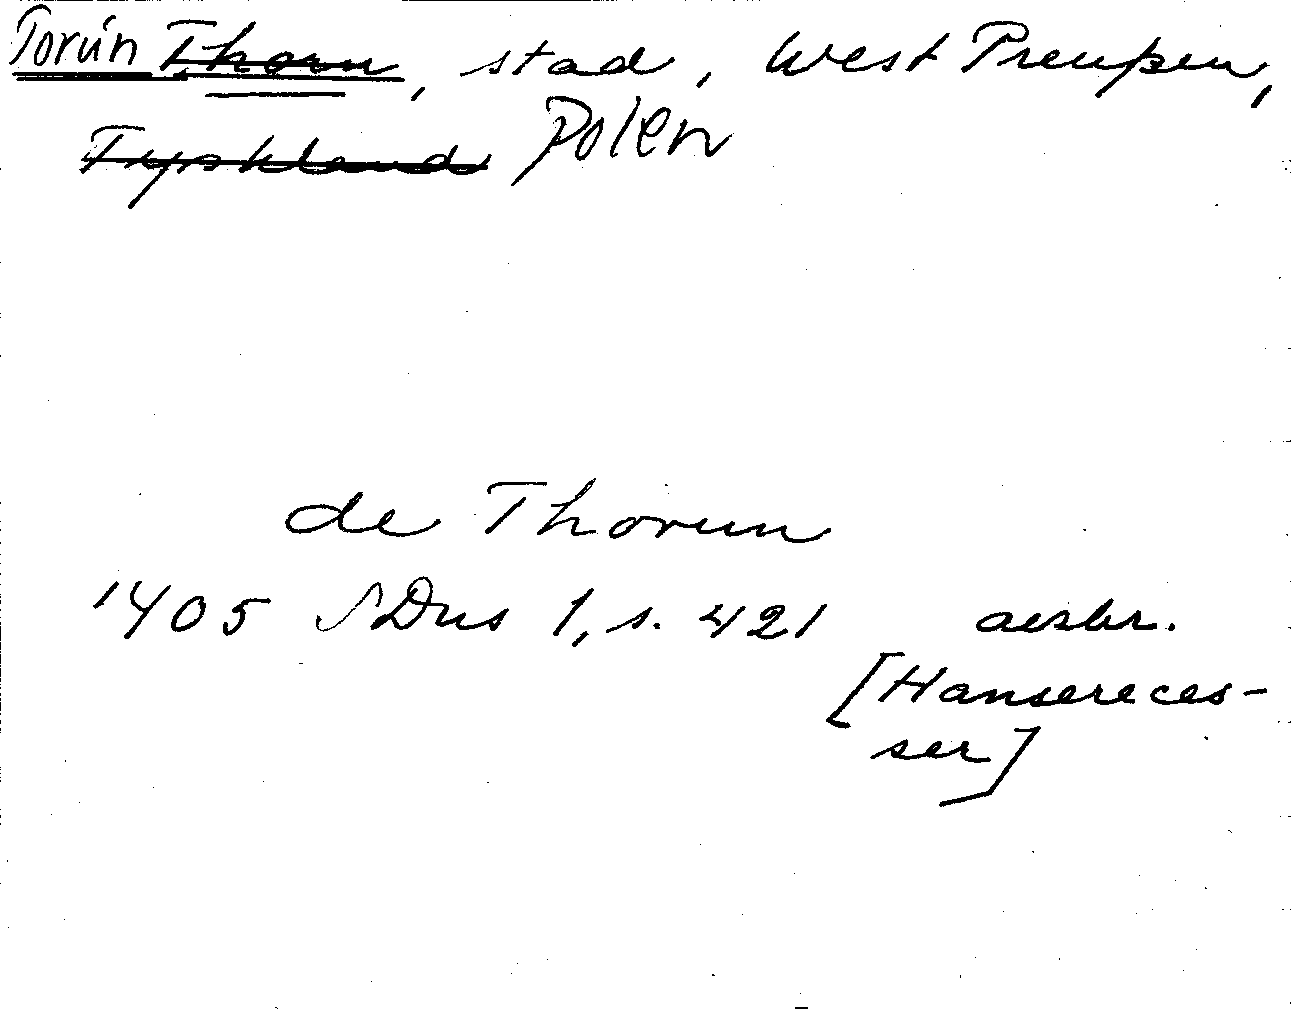 Torún Thorn, stad, West Preußen,
Tyskland Polen
de Thorun
1405 SDns 1, s. 421 avskr.
[Hansereces-
ser]